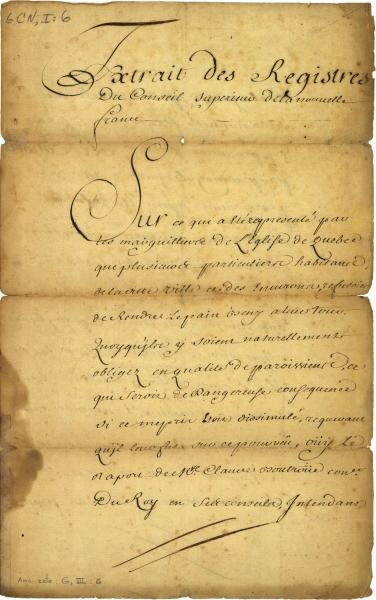 6 CN, I : 6
Extrait des Registres
Du Conseil superieur de la nouvelle
france
Sur ce qui a esté representé par
les marguilliers de L'Eglise de Quebec
que plusieurs particuliers habitans
de la ditte ville et des Environs, refusoient
de Rendre Le pain beny a leur tour
Quoyqu'ilz y soient naturellement
obligez en qualité de paroissiens, ce
qui seroit de dangereuse consequence
si ce mepris dissimulé, requerant
qu'il leur fut sur ce pourveu, ouy Le
raport de Me Claude conr
Du Roy en ses conseils, Intendant
6, III : 6